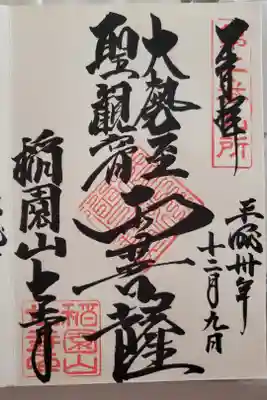 奉拝
平成卅年
十二月九日
大勢至
聖観音
両菩薩
稲園山七寺
稲園山